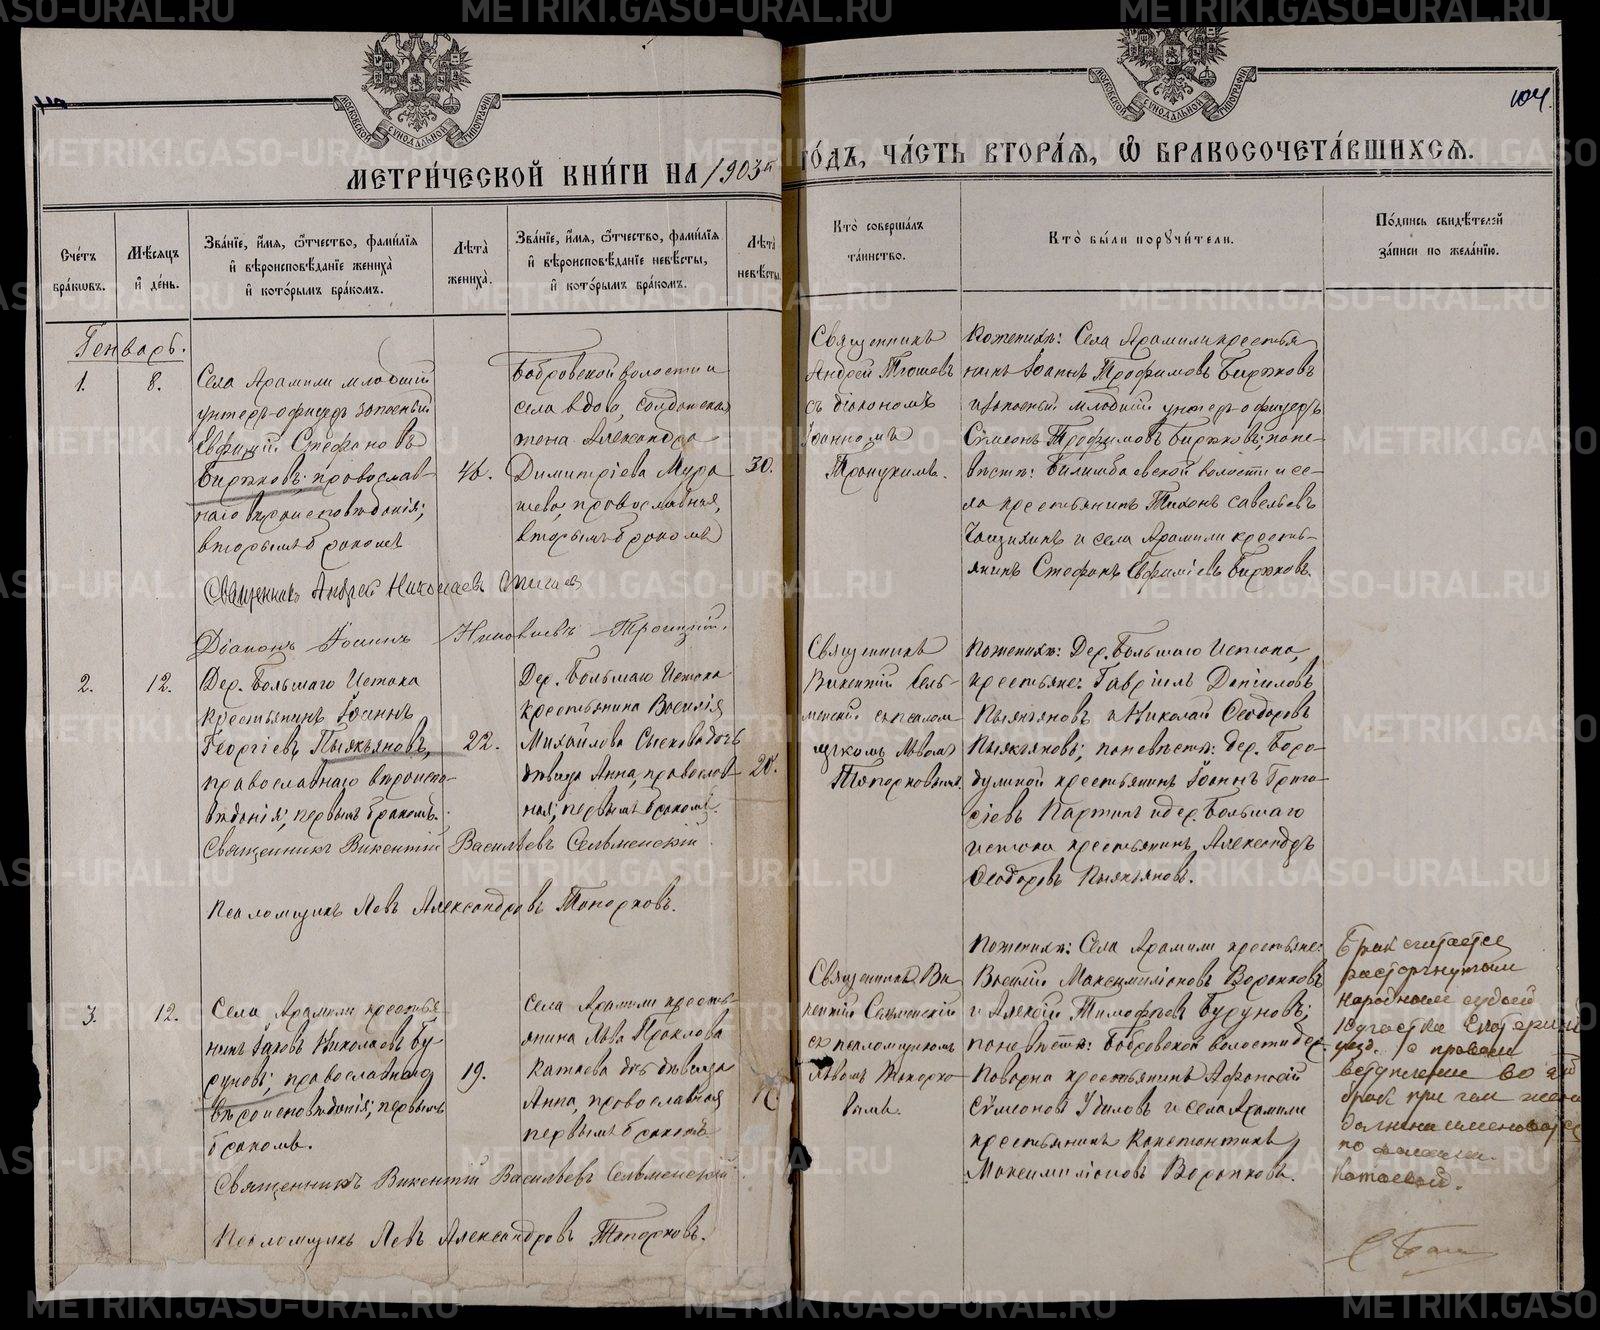 METRIKI.GASO-URAL.RU
МОСКОВСКОЙ СѴНОДАЛЬНОЙ ТИПОГРАФІИ
104.
МЕТРИ́ЧЕСКОЙ КНИ́ГИ НА 1903й ГО́ДЪ, ЧА́СТЬ ВТОРА́Я, Ѽ БРАКОСОЧЕТА́ВШИХСЯ.
Сче́тъ бра́кѡвъ.
Мѣ́сяцъ и҆ де́нь.
Зва́нїе, и҆́мя, ѻ҆́тчество, фами́лїя и҆ вѣроисповѣ́данїе жениха̀ и҆ кото́рымъ бра́комъ.
Лѣта̀ жениха̀.
Зва́нїе, и҆́мя, ѻ҆́тчество, фами́лїя и҆ вѣроисповѣ́данїе невѣ́сты, и҆ кото́рымъ бра́комъ.
Лѣта̀ невѣ́сты.
Кто̀ соверша́лъ та́инство.
Кто̀ бы́ли порꙋчи́тели.
По́дпись свидѣ́телей за́писи по жела́нїю.
Генварь.
1.
8.
Села Арамили младшій
унтеръ-офицеръ запасный
Евфимій Стефановъ
Бирюковъ; православ-
наго вѣроисповѣданія;
вторымъ бракомъ
Бобровской волости и
села вдова, солдатская
жена Александра
Димитріева
православная,
вторымъ бракомъ
30.
Священникъ
Андрей
съ діакономъ
Іоанномъ
По женихѣ: Села Арамили крестья
нинъ Іоаннъ Трофимовъ Бирюковъ
и запасный младшій унтеръ-офицеръ
Сѵмеонъ Трофимовъ Бирюковъ; по не-
вѣстѣ: Билимбаевской волости и се-
ла крестьянинъ Тихонъ Савельевъ
и села Арамили кресть-
янинъ Стефанъ Евфиміевъ Бирюковъ.
Священникъ Андрей Николаевъ
Діаконъ Іоаннъ
2.
12.
Дер. Большаго Истока
крестьянинъ Іоаннъ
Георгіевъ Пьянковъ,
православнаго вѣроиспо-
вѣданія; первымъ бракомъ.
22.
Дер. Большаго Истока
крестьянина Василія
Михайлова дочь
дѣвица Анна, православ-
ная; первымъ бракомъ.
20.
Священникъ
Викентій Сель-
менскій съ псалом-
щикомъ Львомъ
Топорковымъ
По женихѣ: Дер. Большаго Истока,
крестьяне: Гавріилъ Даніиловъ
и Николай Ѳеодоровъ
по невѣстѣ: дер. Боро-
дулиной крестьянинъ Іоаннъ
и дер. Большаго
Истока крестьянинъ Александръ
Ѳеодоровъ
Священникъ Викентій Васильевъ Сельменскій
Псаломщикъ Левъ Александровъ Топорковъ.
3.
12.
Села Арамили крестья
нинъ Іаковъ Николаевъ Бу-
руновъ; православнаго
вѣроисповѣданія; первымъ
бракомъ.
19.
Села Арамили кресть-
янина Льва Проклова
Катаева дочь дѣвица
Анна, православная
первымъ бракомъ
Священникъ Ви
кентій Сельменскій
съ псаломщикомъ
Львомъ Топорко-
вымъ.
По женихѣ: Села Арамили крестьяне:
Василій Максимиліановъ Воронковъ
и Алексій Тимофеевъ Буруновъ;
по невѣстѣ: Бобровской волости дер.
крестьянинъ Афанасій
Сѵмеоновъ и села Арамили
крестьянинъ Константинъ
Максимиліановъ Воронковъ.
Брак считается
расторгнутым
народным судьей
участка Екатерин
уезд. с правом
вступления во 2й
брак при чем жена
должна именоваться
по фамилии
Катаевой.
Священникъ Викентій Васильевъ Сельменскій
Псаломщикъ Левъ Александровъ Топорковъ.